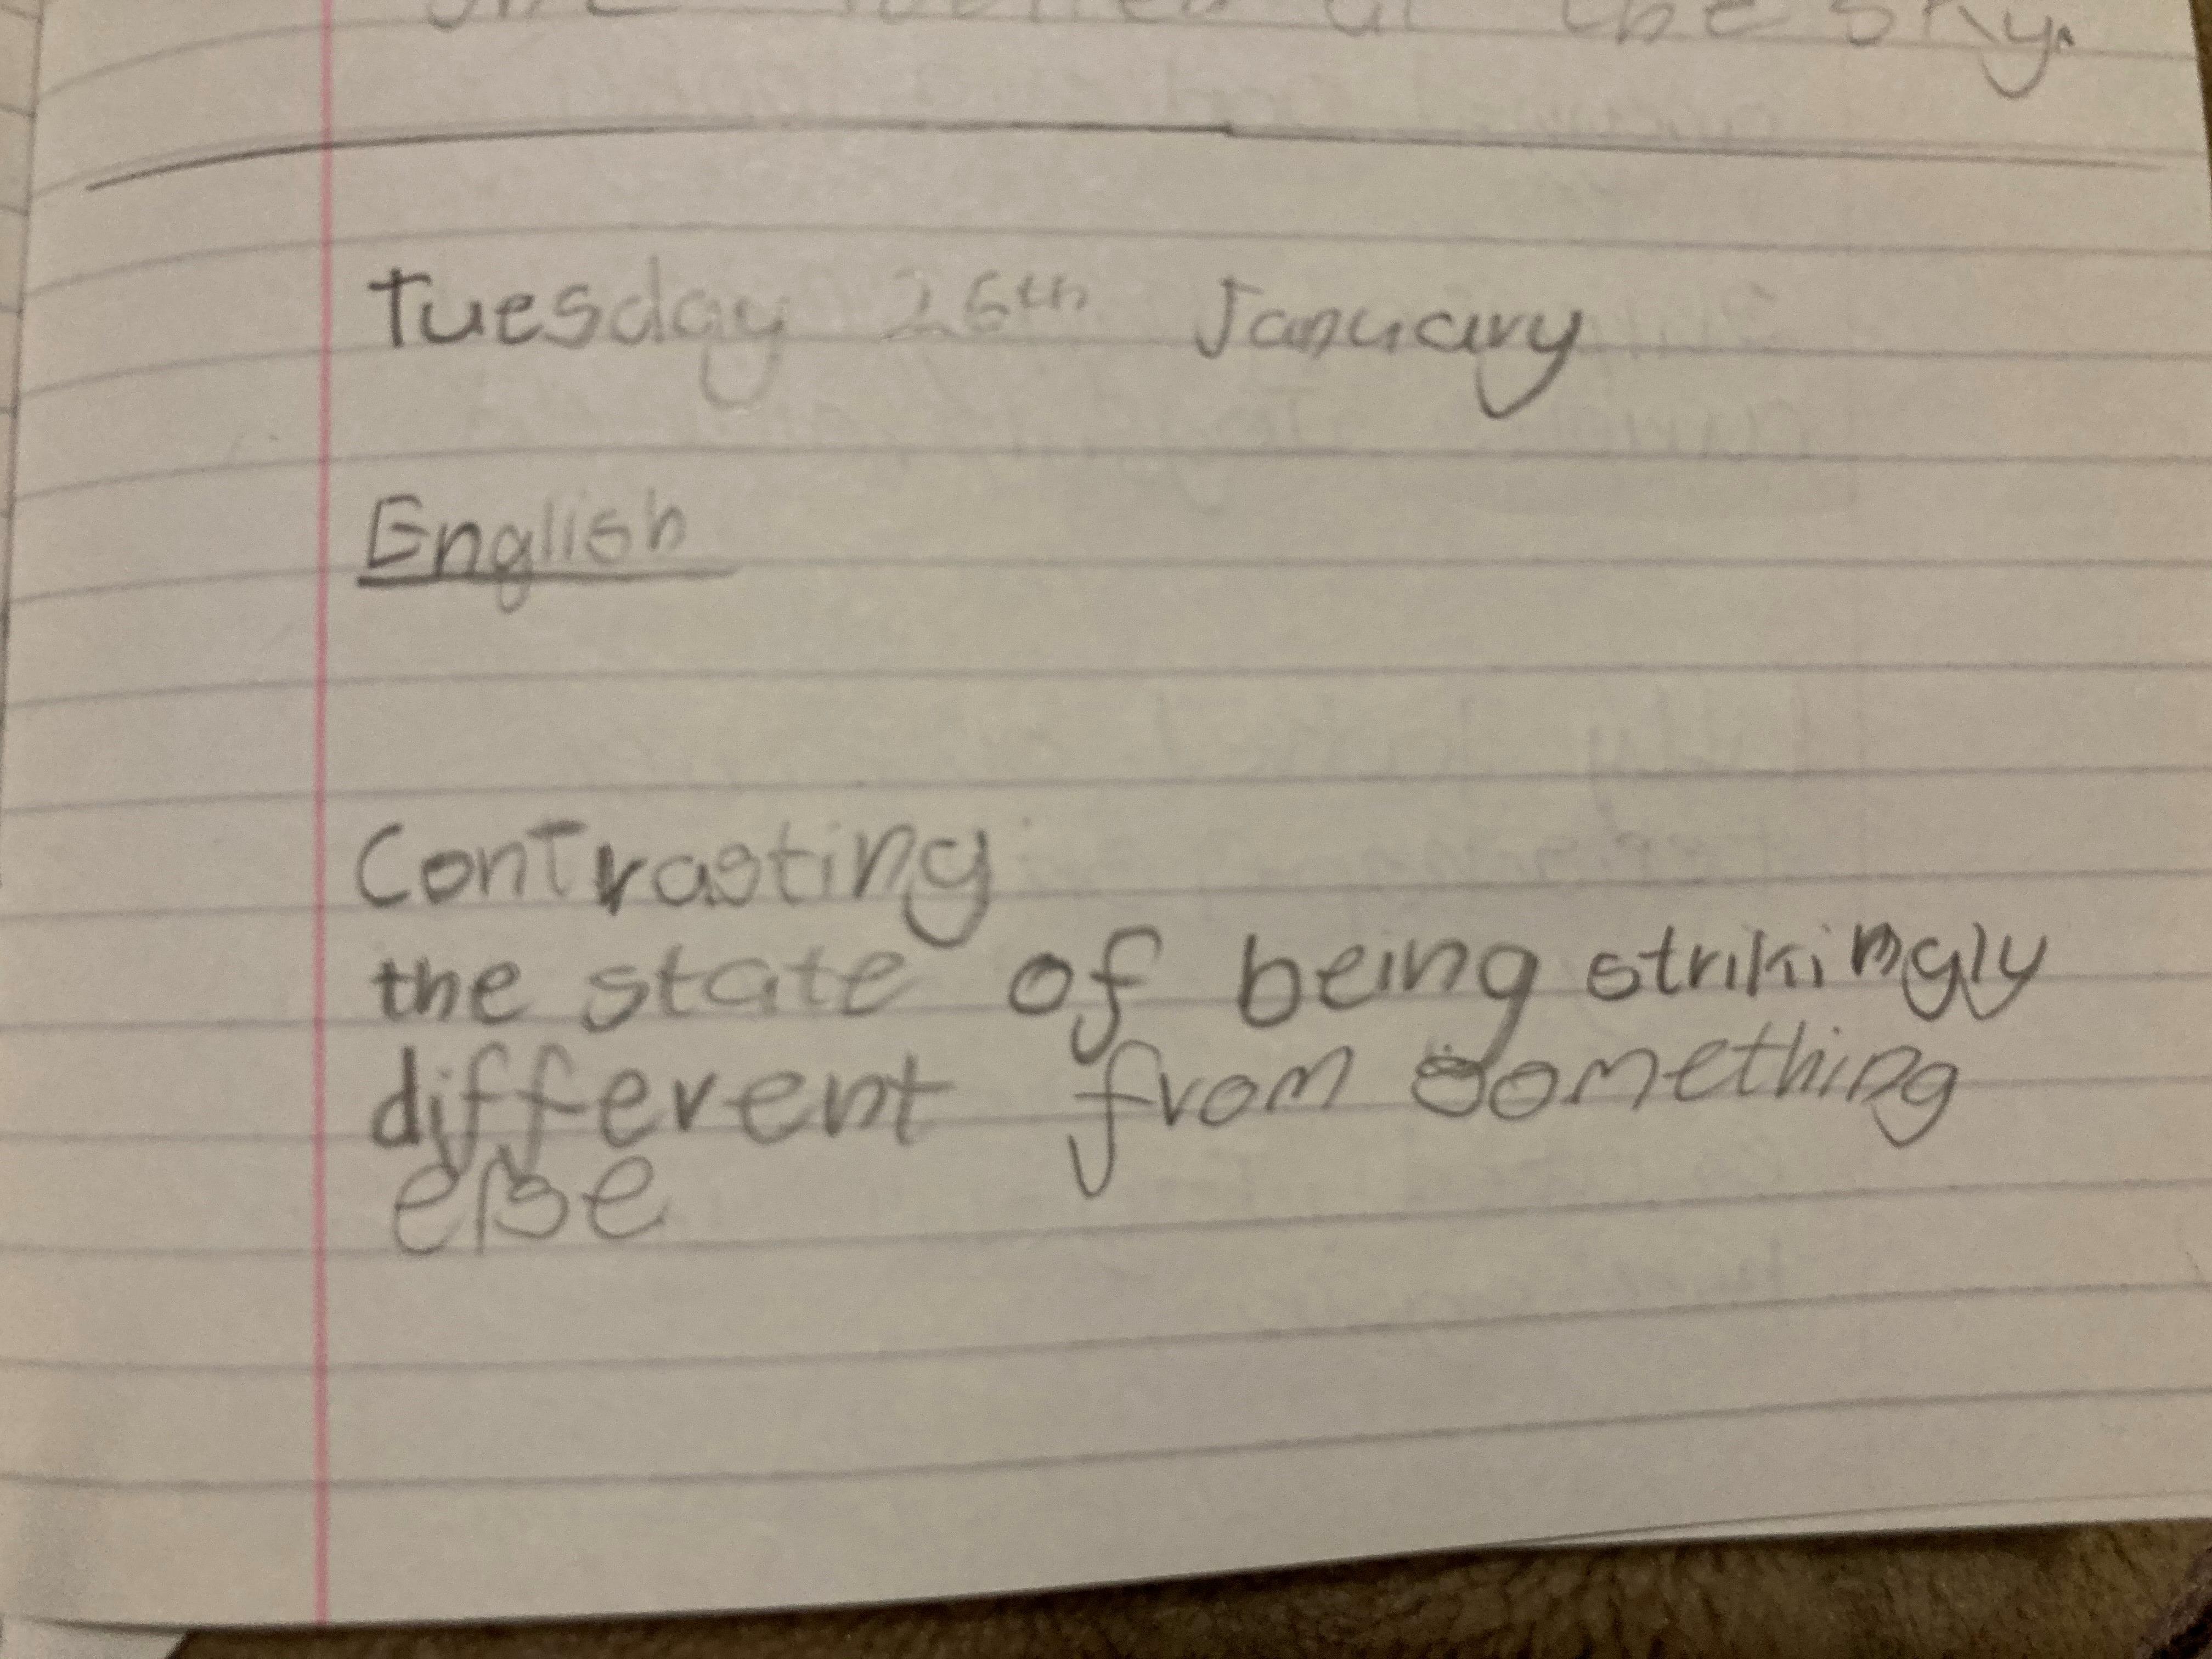 looked at the sky.
Tuesday 26th January
English
Contrasting
the state of being strikingly
different from something
else